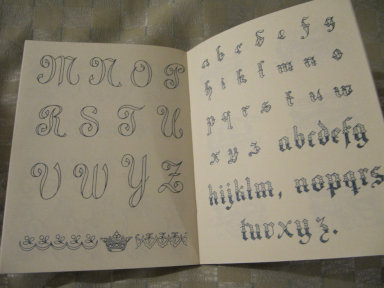 M N O P
R S T U
V W Y Z
a b c d e f g
h i k l m n o
p q r s t u w
x y z
abcdefg
hijklm, nopqrs
tuvxyz.